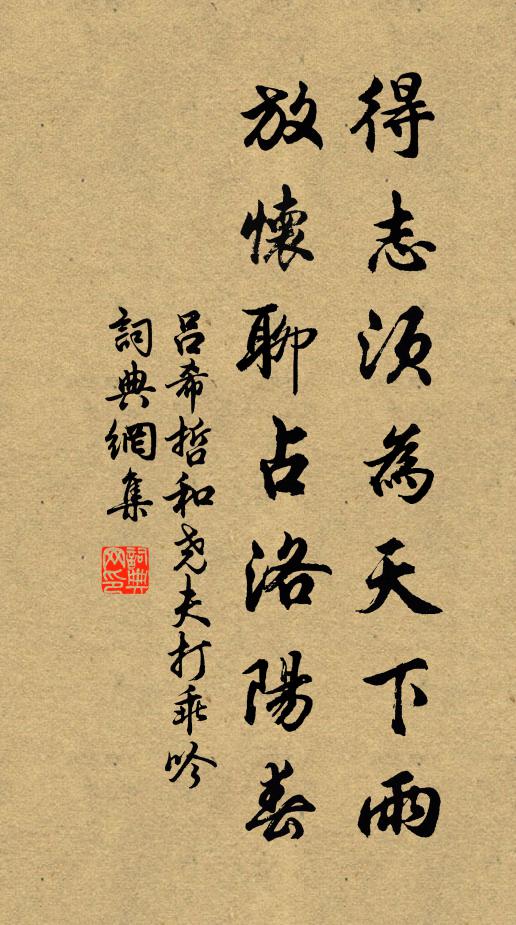 得志須為天下雨
放懷聊占洛陽春
呂希哲和尧夫打乖吟
詞典網集
詞典网印